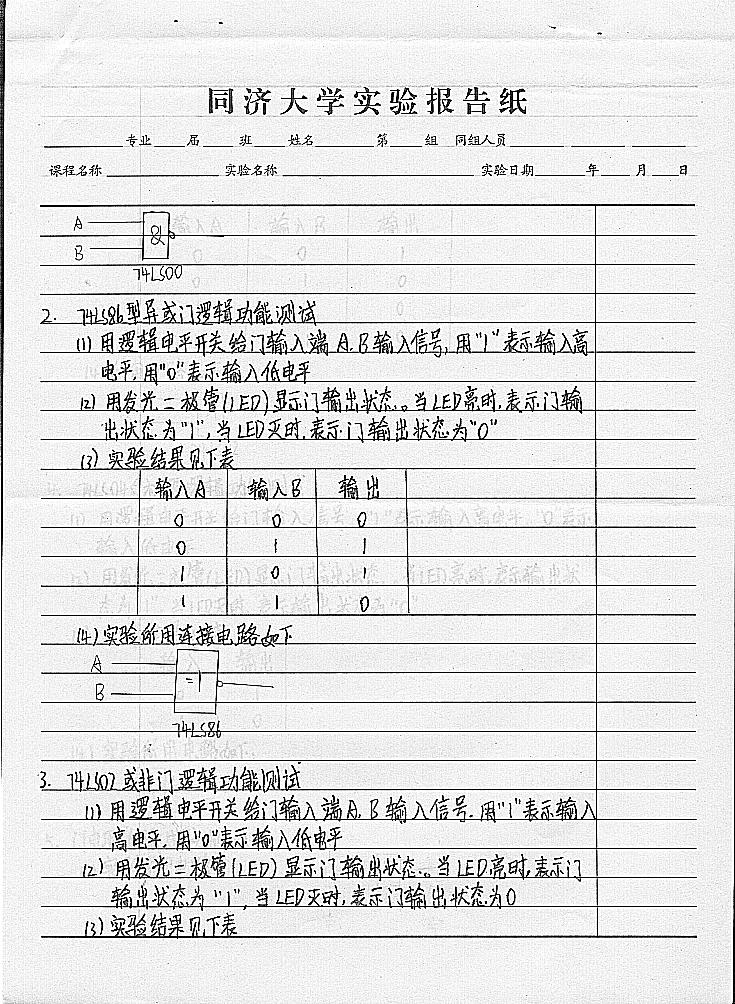 同济大学实验报告纸
专业 届 班 姓名 第 组 同组人员
课程名称 实验名称 实验日期 年 月 日
A
B
&
74LS00
2. 74LS86型异或门逻辑功能测试
(1) 用逻辑电平开关给门输入端A.B输入信号,用"1"表示输入高
电平,用"0"表示输入低电平
(2) 用发光二极管(LED)显示门输出状态。当LED亮时,表示门输
出状态为"1",当LED灭时,表示门输出状态为"0"
(3) 实验结果见下表
输入A 输入B 输出
0 0 0
0 1 1
1 0 1
1 1 0
(4) 实验所用连接电路如下
A
B
=1
74LS86
3. 74LS02或非门逻辑功能测试
(1) 用逻辑电平开关给门输入端A.B输入信号.用"1"表示输入
高电平.用"0"表示输入低电平
(2) 用发光二极管(LED)显示门输出状态。当LED亮时,表示门
输出状态为"1",当LED灭时,表示门输出状态为0
(3) 实验结果见下表